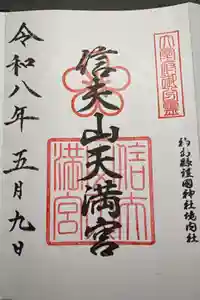 信夫山天満宮
福島縣護國神社境内社
令和八年五月九日
信夫
満宮